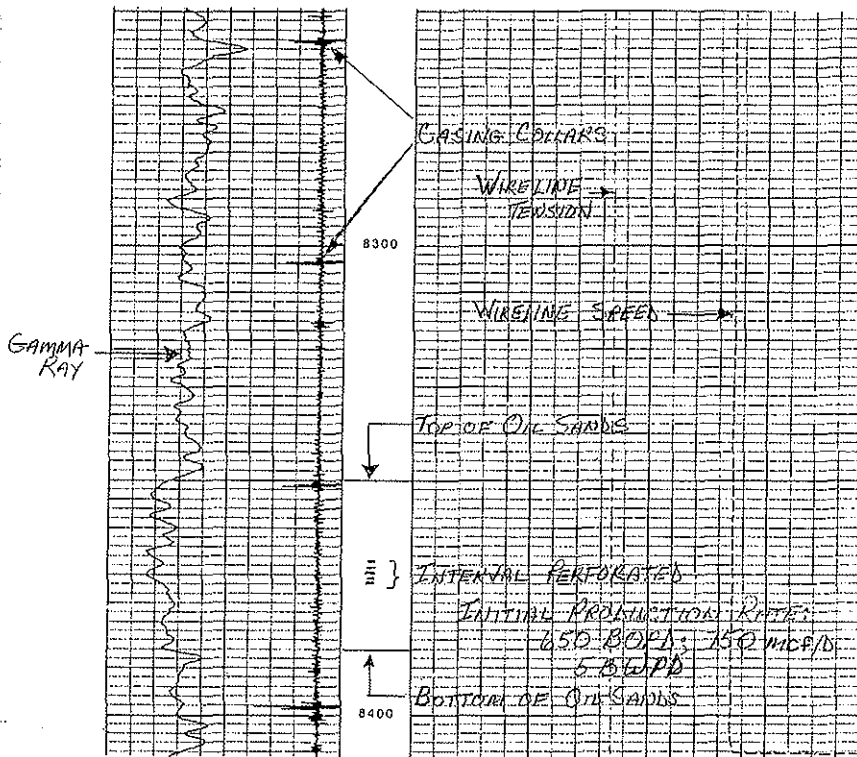 CASING COLLARS
WIRELINE
TENSION
8300
WIRELINE SPEED
GAMMA
RAY
TOP OF OIL SANDS
INTERVAL PERFORATED
INITIAL PRODUCTION RATE:
650 BOPD; 750 MCF/D
5 BWPD
BOTTOM OF OIL SANDS
8400